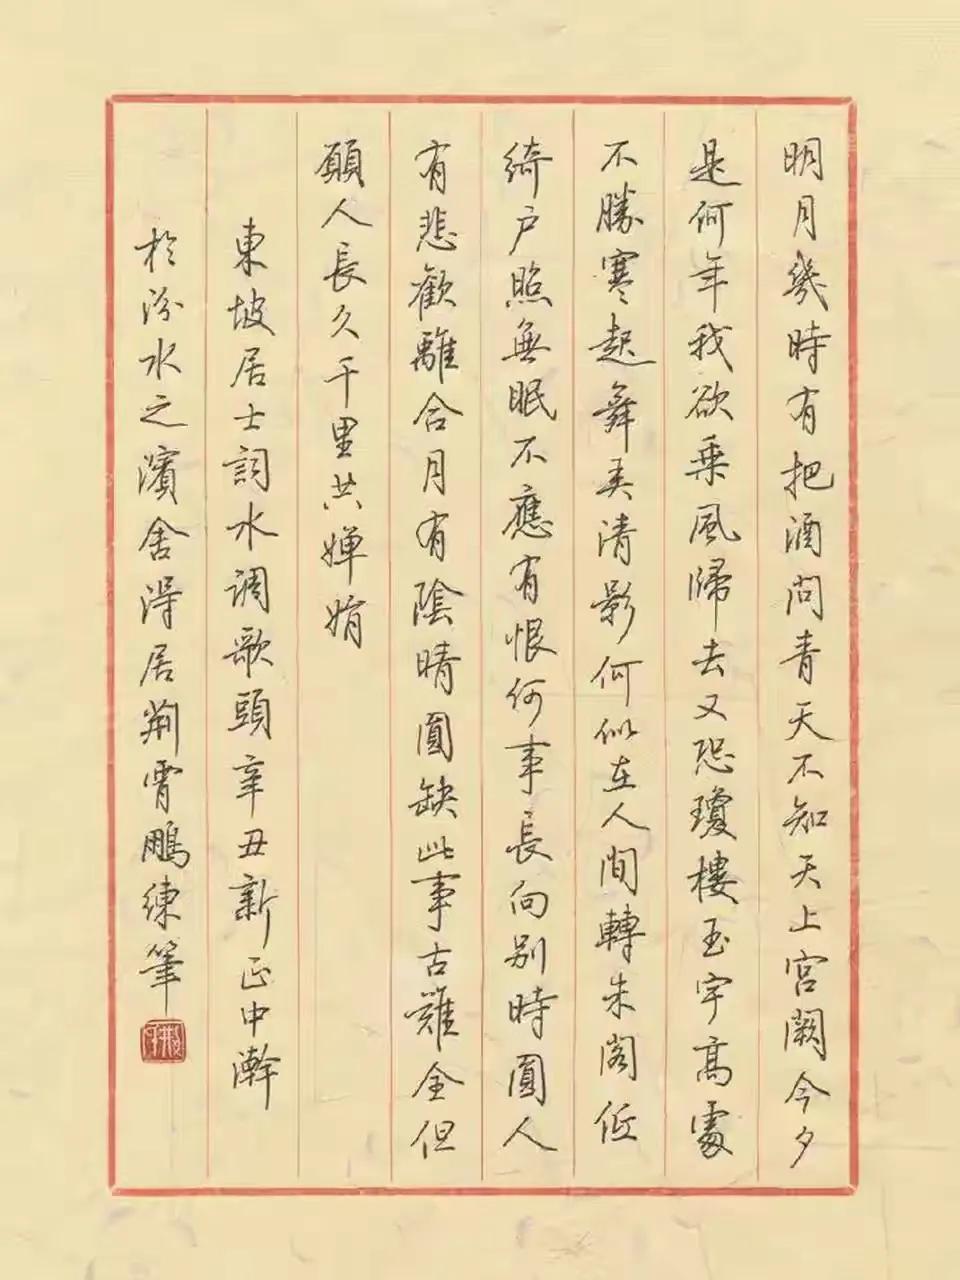 明月幾時有把酒問青天不知天上宮闕今夕
是何年我欲乘風歸去又恐瓊樓玉宇高處
不勝寒起舞弄清影何似在人間轉朱閣低
綺户照無眠不應有恨何事長向別時圓人
有悲歡離合月有陰晴圓缺此事古難全但
願人長久千里共嬋娟
東坡居士詞水調歌頭辛丑新正中澣
於汾水之濱舍得居荆霄鵬練筆